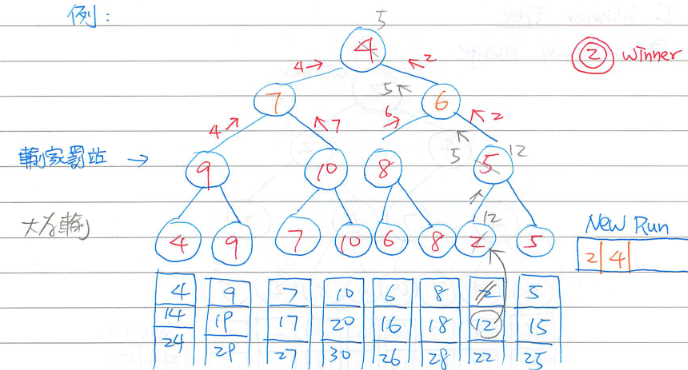 例:
5
4
② winner
4→ ←2
7 5 6
4→ ↖7 6 ↖2
輸家罰站 → 9 10 8 5 5 12
大為輸
12
4 9 7 10 6 8 2 5
New Run
2 4
4 9 7 10 6 8 2 5
14 19 17 20 16 18 12 15
24 29 27 30 26 28 22 25